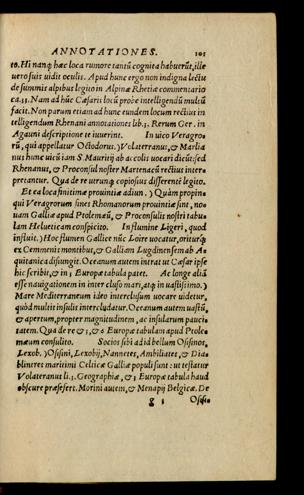 ANNOTATIONES. 101
to. Hi nanq; hæc loca rumore tantū cognita habuerūt, ille
vero suis vidit oculis. Apud hunc ergo non indigna lectu
de summis alpibus legito in Alpinæ Rhetiæ commentario
ca. 35. Nam ad hūc Cæsaris locū probe intelligendū multū
facit. Non parum etiam ad hunc eundem locum rectius in
telligendum Rhenani annotationes lib. 3. Rerum Ger. in
Agauni descriptione te iuuerint. In uico Veragro
rū, qui appellatur Octodorus.) Volaterranus, & Marlia
nus hunc uicū iam S. Mauritij ab ac colis uocari dicūt: sed
Rhenanus, & Proconsul noster Martenacū rectius inter
pretantur. Qua de re utrunq; copiosius differentē legito.
Et ea loca finitimæ prouintiæ adiun.) Quàm propin-
qui Veragrorum fines Rhomanorum prouintiæ sint, no-
uam Galliæ apud Ptolemæū, & Proconsulis nostri tabu-
lam Helueticam conspicito. In flumine Ligeri, quod
influit.) Hoc flumen Gallice nūc Loire uocatur, oriturq;
ex Cemmenis montibus, & Galliam Lugdinensem ab A-
quitanica disiungit. Oceanum autem intrat ut Cæsar ipse
hic scribit, & in 3 Europæ tabula patet. Ac longe aliā
esse nauigationem in inter cluso mari, atq; in uastissimo.)
Mare Mediterraneum ideo interclusum uocare uidetur,
quòd multis insulis intercludatur. Oceanum autem uastū,
& apertum, propter magnitudinem, ac insularum pauci-
tatem. Qua de re & 3, & 6 Europæ tabulam apud Ptole-
mæum consulito. Socios sibi ad id bellum Osismos,
Lexob.) Osismi, Lexobij, Nannetes, Ambiliates, & Dia-
blintres maritimi Celticæ Galliæ populi sunt: ut testatur
Volateranus li. 3. Geographiæ, & 3 Europæ tabula haud
obscure præsefert. Morini autem, & Menapij Belgicæ. De
g 3 Osis-